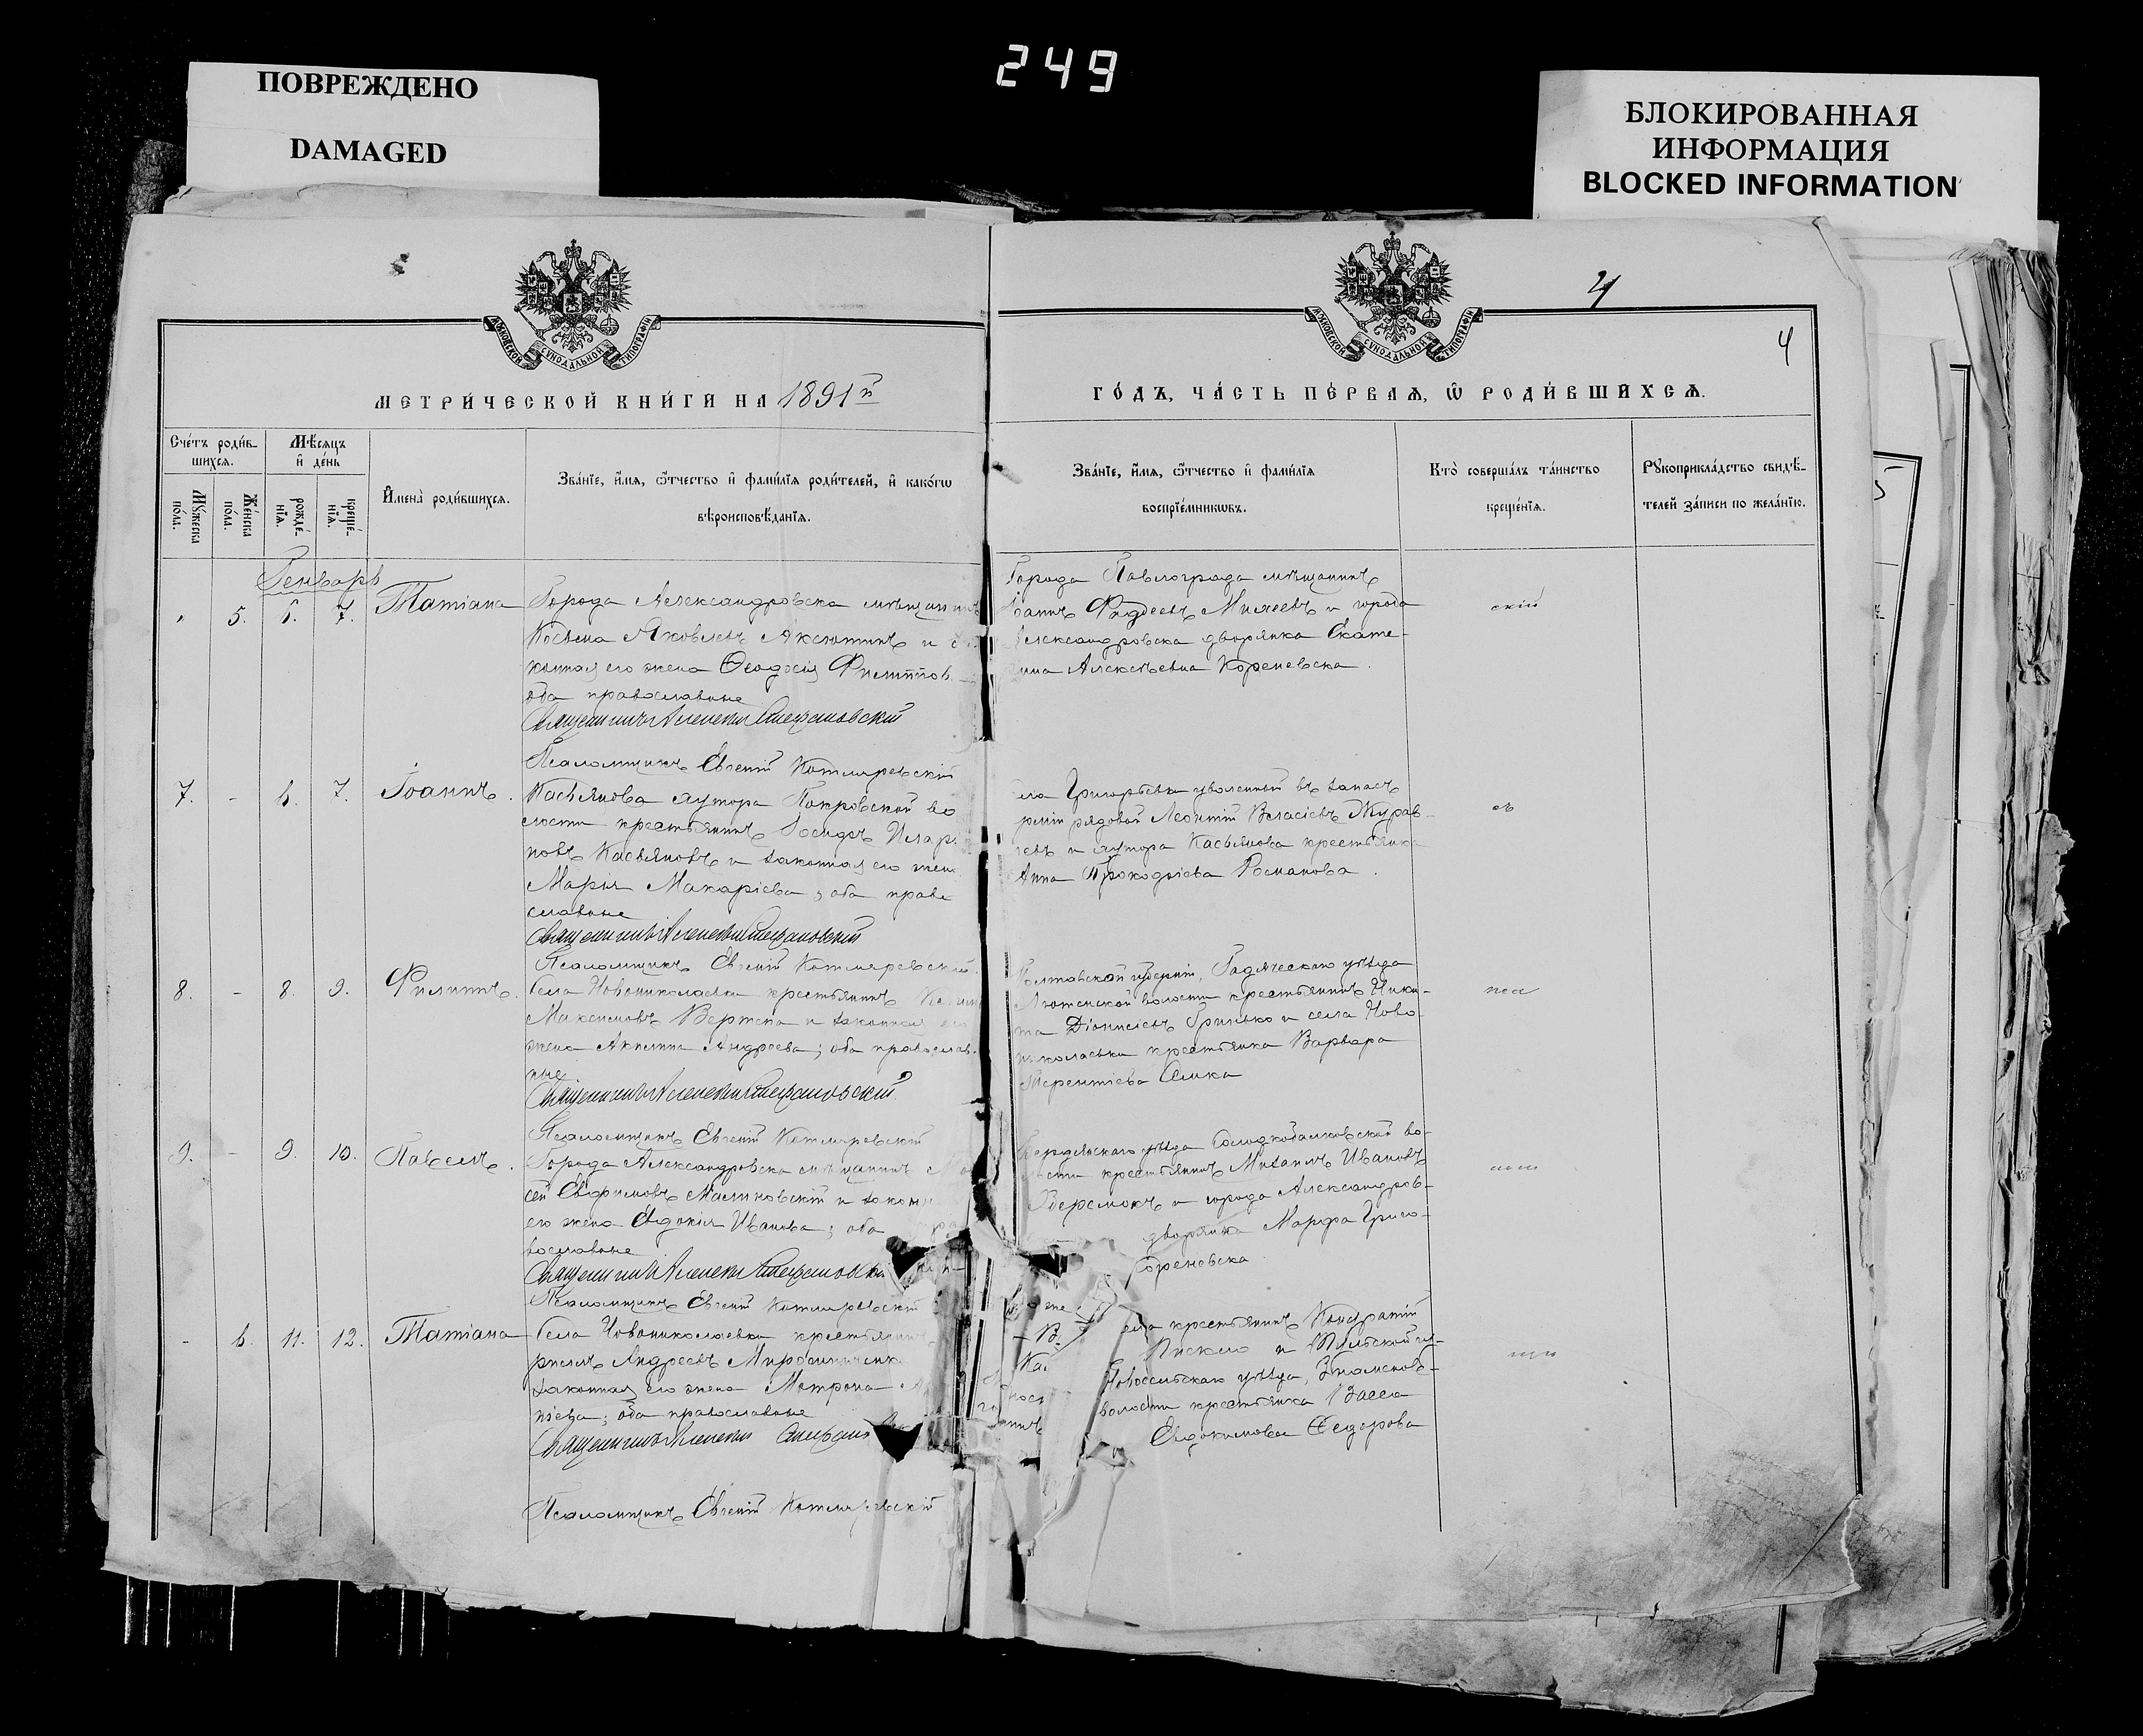 249
ПОВРЕЖДЕНО
DAMAGED
БЛОКИРОВАННАЯ
ИНФОРМАЦИЯ
BLOCKED INFORMATION
4
4
МОСКОВСКОЙ СУНОДАЛЬНОЙ ТИПОГРАФІИ
МОСКОВСКОЙ СУНОДАЛЬНОЙ ТИПОГРАФІИ
МЕТРИ́ЧЕСКОЙ КНИ́ГИ НА 1891й
ГО́ДЪ, ЧА́СТЬ ПЕ́РВАѦ, Ѿ РОДИ́ВШИХСѦ.
Сче́тъ роди́в-
шихсѧ.
Мꙋ́жеска по́ла.
Же́нска по́ла.
Мѣ́сѧцъ
и҆ де́нь
рожде́-
нїѧ.
креще́-
нїѧ.
И҆мена̀ роди́вшихсѧ.
Зва́нїе, и҆́мѧ, ѻ҆́тчество и҆ фами́лїѧ роди́телей, и҆ како́гѡ
вѣроисповѣ́данїѧ.
Зва́нїе, и҆́мѧ, ѻ҆́тчество и҆ фами́лїѧ
воспрїе́мникѡвъ.
Кто̀ соверша́лъ та́инство
креще́нїѧ.
Рꙋкоприкла́дство свидѣ́-
телей за́писи по жела́нїю.
Генварь
5. 6. 7. Татіана
Города Александровска мѣщанинъ
Косьма Яковлевъ Аксютинъ и
конная его жена Ѳеодосія Филиппов
оба православные
Священникъ Алексій Стефановскій
Псаломщикъ Евгеній Котляревскій
Города Павлограда мѣщанинъ
Фаддеевъ Михеевъ и города
Александровска дворянка Екате-
рина Алексѣевна Кореневска.
скій
7. - 6. 7. Іоаннъ.
Касьянова хутора Покровской во
лости крестьянинъ Іосифъ Илар
новъ Касьяновъ и законная его жена
Марія Макаріева; оба право
славные
Священникъ Алексій Стефановскій
Псаломщикъ Евгеній Котляревскій
села Григорьевки уволенный въ запасъ
арміи рядовой Леонтій Власіевъ Журав-
левъ и хутора Касьянова крестьянка
Анна Прокофіева Романова.
8. - 8. 9. Филиппъ.
Села Новониколаевки крестьянинъ
Максимовъ Вертепа и законная его
жена Акилина Андреева; оба православ-
ные
Священникъ Алексій Стефановскій
Псаломщикъ Евгеній Котляревскій
Полтавской губерніи, Гадяческаго уѣзда
Лютенской волости крестьянинъ Ники-
та Діонисіевъ Гринько и села Ново-
николаевки крестьянка Варвара
Терентіева
9. - 9. 10. Павелъ.
Города Александровска мѣщанинъ
сей Евфимовъ Малиновскій и закон
его жена Евдокія Иванова; оба пра
вославные
Священникъ Алексій Стефановскій
Псаломщикъ Евгеній Котляревскій
Бердянскаго уѣзда во-
лости крестьянинъ Михаилъ Ивановъ
и города Александров-
дворянка Марфа Григо-
Кореневска
- 6. 11. 12. Татіана
Села Новониколаевки крестьянинъ
риллъ Андреевъ Мирошниченк
законная его жена Матрона
піева; оба православные
Священникъ Алексій Стефанов
Псаломщикъ Евгеній Котляревскій
села крестьянинъ Кондратій
и Тульской гу-
Новосильскаго уѣзда,
волости крестьянка Васса
Евдокимова Ѳедорова